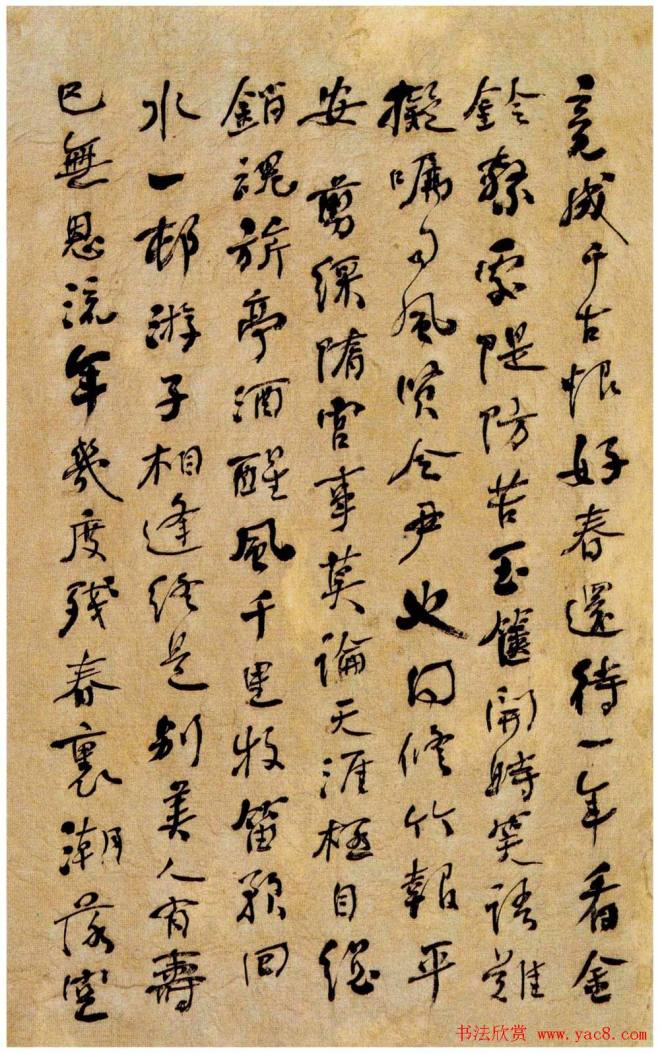 竟成千古恨好春還待一年看金
鈴繫處隄防苦玉篋開時笑語難
擬囑司風賢令尹也同修竹報平
安 剪綵隋宮事莫論天涯極目總
銷魂旂亭酒醒風千里牧笛歌回
水一邨游子相逢終是別美人有壽
已無恩流年幾度殘春裏潮落空
书法欣赏 www.yac8.com